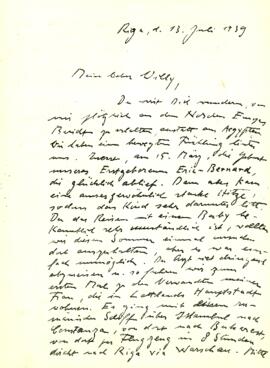 Riga, d. 13. Juli 1939
Mein lieber Willy,
Du wirst Dich wundern, von
mir plötzlich an dem Norden Europas
Bericht zu erhalten, anstatt aus Aegypten
Wir haben einen bewegten Frühling hinter
uns. Zuerst, am 15. März, die Geburt
unseres Erstgeborenen Eric-Bernard,
die glücklich ablief. Dann aber kam
eine aussergewöhnlich starke Hitze,
sodass das Kind sehr darunter litt.
Da das Reisen mit einem Baby be-
kanntlich sehr umständlich ist, wollten
wir diesen Sommer einmal
dort aushalten, aber es
möglich. Der Arzt riet dringend
abzureisen u. so fuhren wir zum
ersten Mal zu den Verwandten meiner
Frau, die in Lettlands Hauptstadt
wohnen. Es ging mit diesem ru-
mänischen Schiff über Istambul nach
Constanza, von dort nach Bukarest,
von dort per Flugzeug in 8 Stunden
direkt nach Riga via Warschau. Bitte